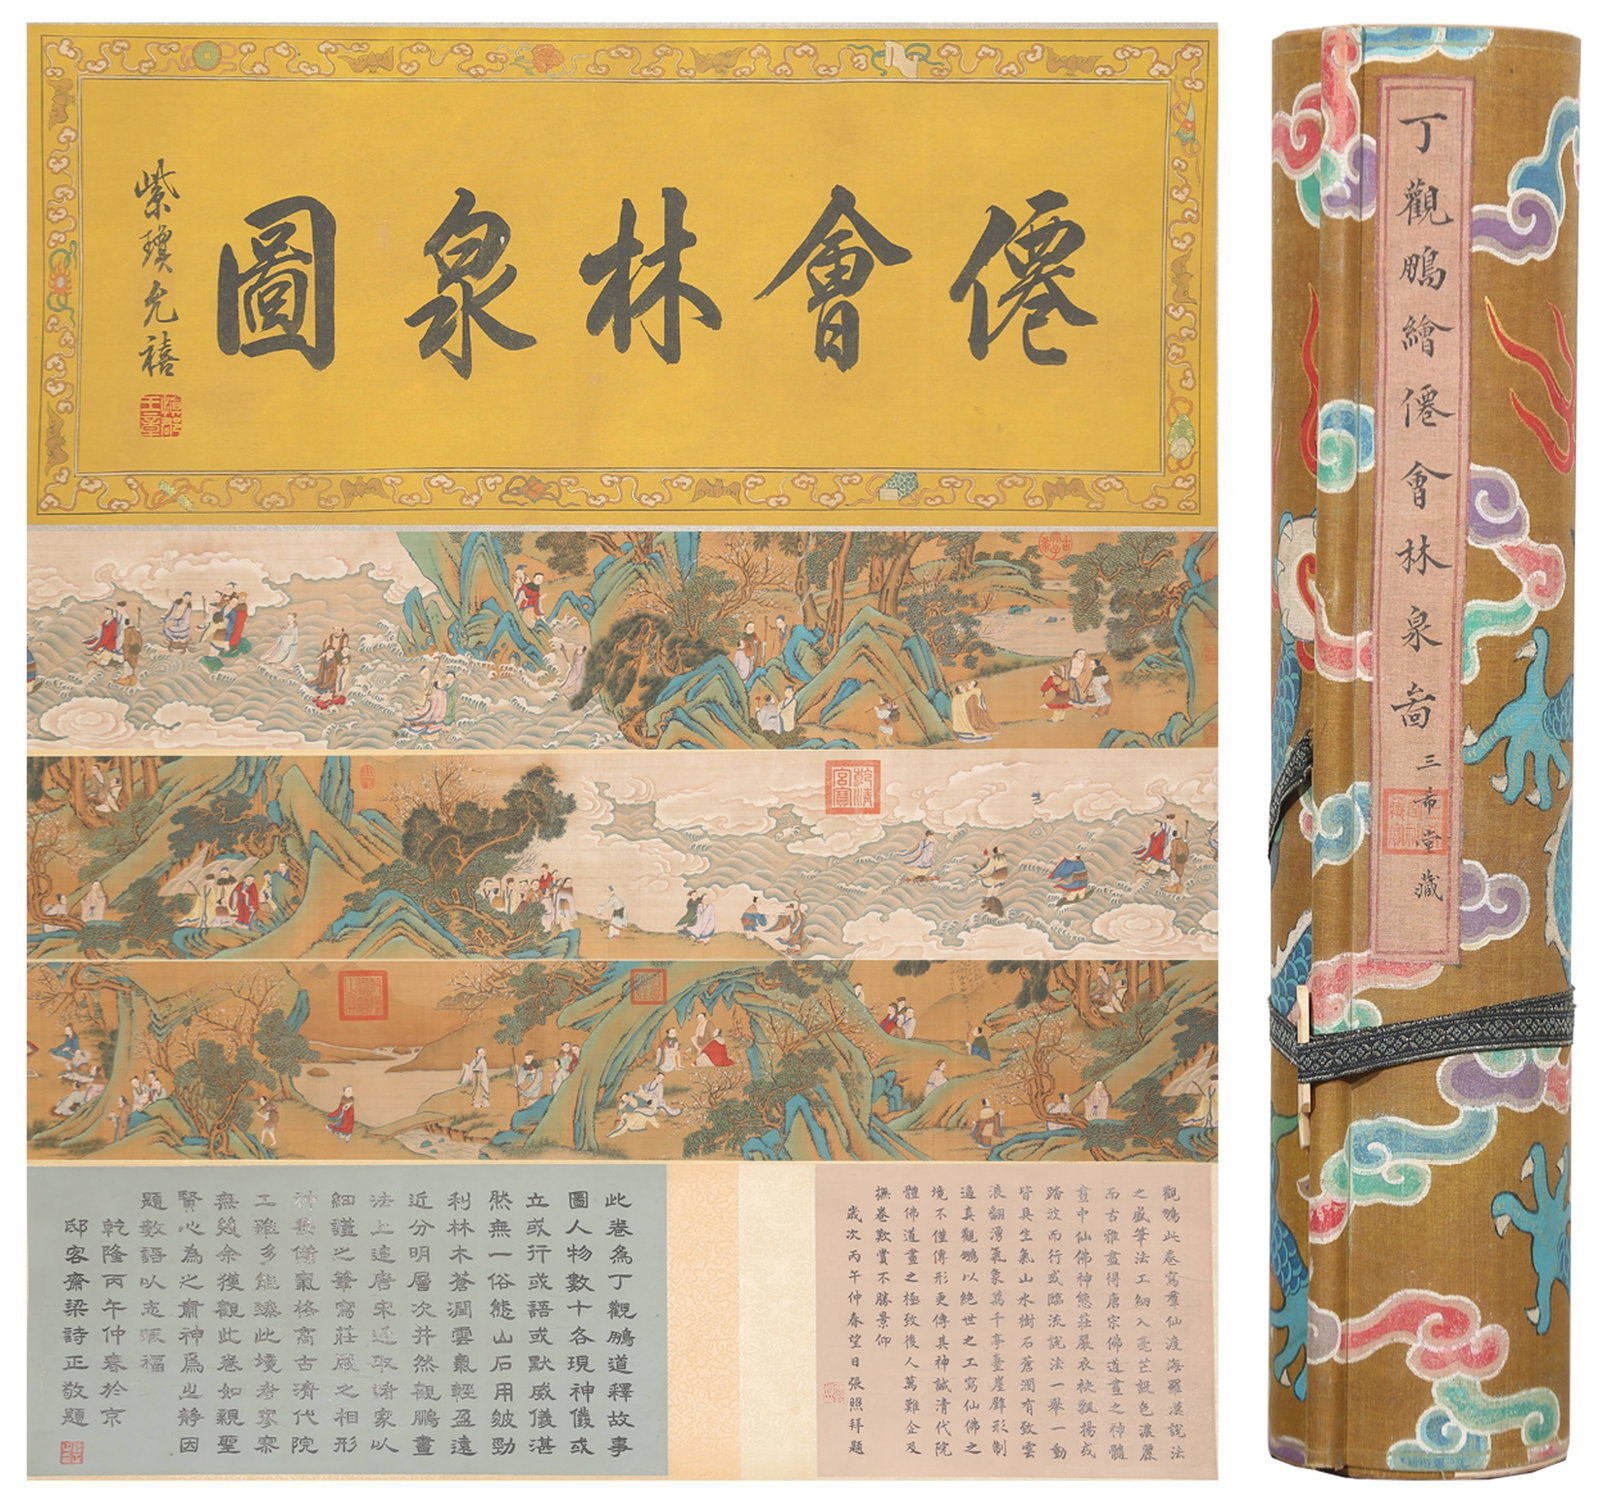 僊會林泉圖
紫瓊允禧
乾清宮寶
觀鵬此卷寫羣仙渡海羅漢說法
之盛筆法工細入毫芒設色濃麗
而古雅盡得唐宗佛道畫之神髓
畫中仙佛神態莊嚴衣袂飄揚或
踏波而行或臨流說法一舉一動
皆具生氣山水樹石蒼潤有致雲
浪翻湧氣象萬千亭臺崖壁形制
逼真觀鵬以絕世之工寫仙佛之
境不僅傳形更傳其神誠清代院
體佛道畫之極致後人萬難企及
撫卷歎賞不勝景仰
歲次丙午仲春望日張照拜題
此卷為丁觀鵬道釋故事
圖人物數十各現神儀或
立或行或語或默威儀湛
然無一俗態山石用皴勁
利林木蒼潤雲氣輕盈遠
近分明層次井然觀鵬畫
法上追唐宋近取諸家以
細謹之筆寫莊嚴之相形
神兼備氣格高古清代院
工雖多能臻此境者寥寥
無幾余獲觀此卷如親聖
賢心為之肅神為之靜因
題數語以志眼福
乾隆丙午仲春於京
邸客齋梁詩正敬題
丁觀鵬繪僊會林泉啚
三希堂藏